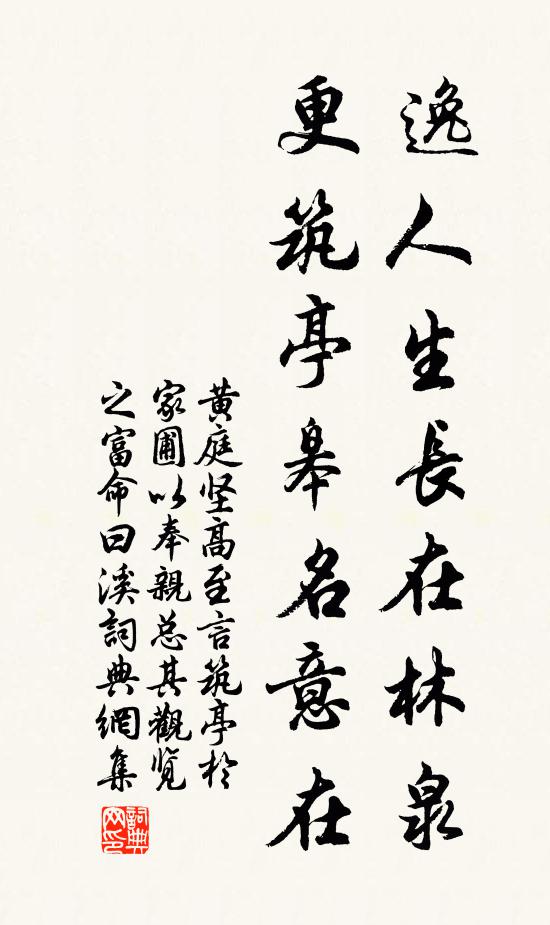 逸人生長在林泉
更筑亭皋名意在
黄庭坚高至言筑亭於
家圃以奉親总其觀览
之富命曰溪詞典網集
詞典网印